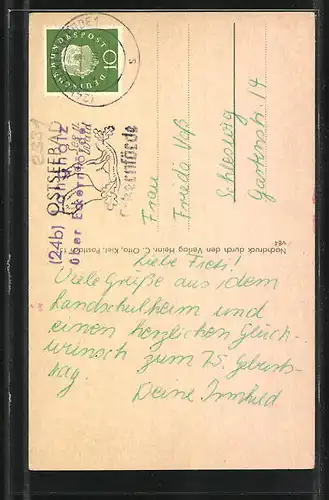 (24b) Langholz
über Eckernförde
OSTSEEBAD
Eckernförde
DEUTSCHE BUNDESPOST
10
Frau
Frieda Voß
Schleswig
Gartenstr. 14
Nachdruck durch den Verlag Heinr. C. Otto, Kiel, Postfach
V84
Liebe Fieti!
Viele Grüße aus dem
Landschulheim und
einen herzlichen Glück-
wunsch zum 75. Geburts-
tag.
Deine Irmhild